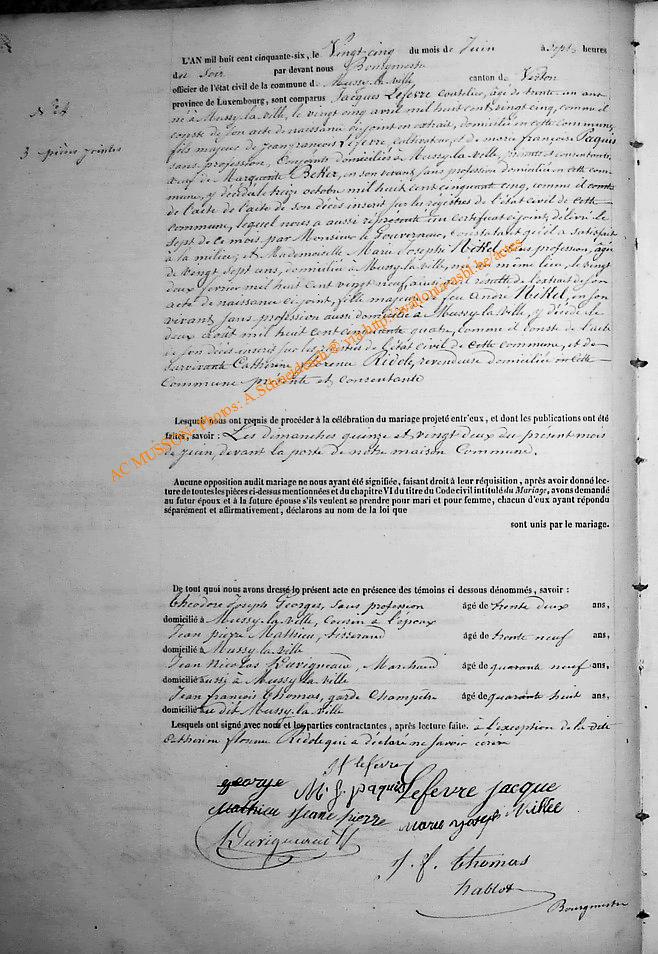 L'AN mil huit cent cinquante-six, le Vingt-cinq du mois de Juin à sept heures
du Soir par devant nous Bourgmestre
officier de l'état civil de la commune de Mussy-la-ville, canton de Virton
province de Luxembourg, sont comparus Jacques Lefevre coutelier, âgé de trente un ans
N° 24
né à Mussy-la-ville, le vingt cinq avril mil huit cent vingt cinq, comme il
conste de son acte de naissance ci-joint en extrait, domicilié en cette commune,
3 pièces jointes
fils majeur de Jean françois Lefevre, cultivateur, et de marie françoise Paquis
sans profession, Conjoints domiciliés à Mussy-la-ville, présents et consentants,
veuf de Marguerite Beker, en son vivant sans profession domiciliée en cette com
mune, y décédée le treize octobre mil huit cent cinquante cinq, comme il conste
de l'acte de l'acte de son décès inscrit sur les registres de l'état civil de cette
commune, lequel nous a aussi représenté un certificat ci-joint, délivré le
sept de ce mois par Monsieur le Gouverneur, Constatant qu'il a satisfait
à la milice; et Mademoiselle Marie Josephe Nikel sans profession, âgée
de vingt sept ans, domiciliée à Mussy-la-ville, née au même lieu, le vingt
deux février mil huit cent vingt neuf, ainsi qu'il résulte de l'extrait de son
acte de naissance ci-joint, fille majeure de feu André Nikel, en son
vivant sans profession aussi domicilié à Mussy-la-ville, y décédé le
deux août mil huit cent cinquante quatre, comme il conste de l'acte
de son décès inscrit sur les registres de l'état civil de cette commune, et de
survivante Catherine florence Ridole, revendeuse domiciliée en cette
Commune présente et consentante
Lesquels nous ont requis de procéder à la célébration du mariage projeté entr'eux, et dont les publications ont été
faites, savoir : Les dimanches quinze et vingt deux du présent mois
de juin, devant la porte de notre maison Commune.
Aucune opposition audit mariage ne nous ayant été signifiée, faisant droit à leur réquisition, après avoir donné lec-
ture de toutes les pièces ci-dessus mentionnées et du chapitre VI du titre du Code civil intitulé du Mariage, avons demandé
au futur époux et à la future épouse s'ils veulent se prendre pour mari et pour femme, chacun d'eux ayant répondu
séparément et affirmativement, déclarons au nom de la loi que
sont unis par le mariage.
De tout quoi nous avons dressé le présent acte en présence des témoins ci dessous dénommés, savoir :
théodore Joseph Georges, sans profession âgé de trente deux ans,
domicilié à Mussy-la-ville, cousin à l'époux
Jean pierre Mathieu, tisserand âgé de trente neuf ans,
domicilié à Mussy-la-ville
Jean Nicolas Duvigneaux, Marchand âgé de quarante neuf ans,
domicilié aussi à Mussy-la-ville
Jean françois Thomas, garde Champêtre âgé de quarante huit ans,
domicilié au dit Mussy-la-ville
Lesquels ont signé avec nous et les parties contractantes, après lecture faite. à l'exception de la dite
Catherine florence Ridole qui a déclaré ne savoir écrire
Jf lefevre
george M. f. paquis Lefevre Jacque
Mathieu Jeane pierre Marie Josephe Nikel
Duvigneaux
J. f. thomas
hablot
Bourgmestre
AC MUSSON- Photos: A.Schneiderch @ via http://wallonia.asbl.be/actes